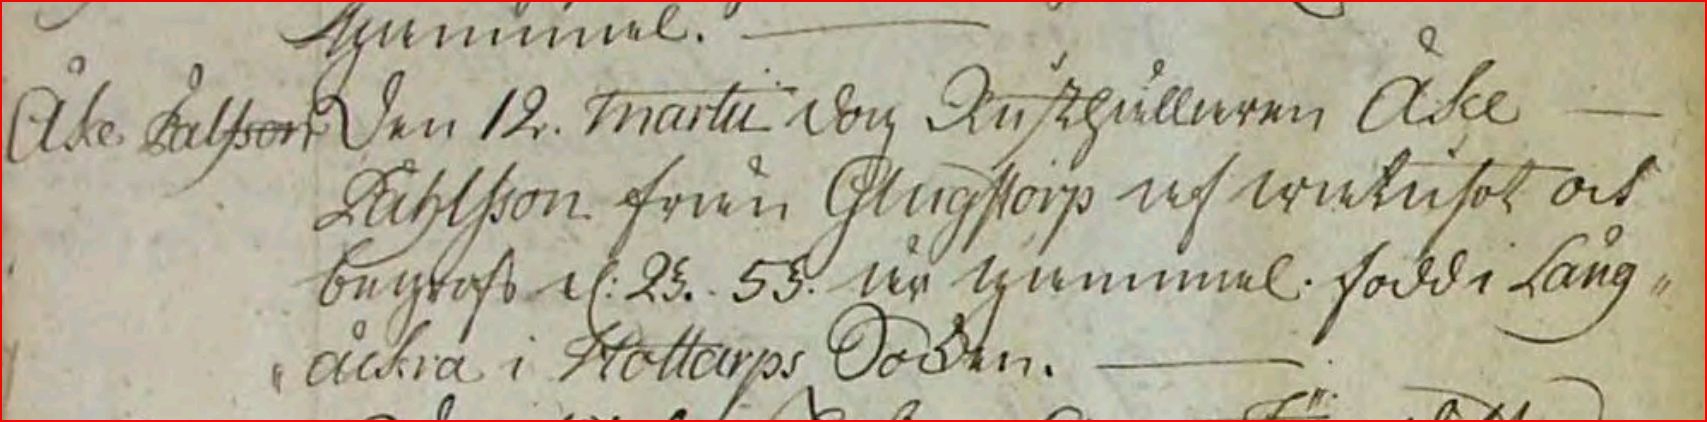 gammal.
Åke Påhlsson Den 12. Martii dog Rusthållaren Åke
Påhlsson från Glugstorp af och
begrofs d. 23. 53. år gammal. född i Lång„
„åckra i Tottarps Socken.